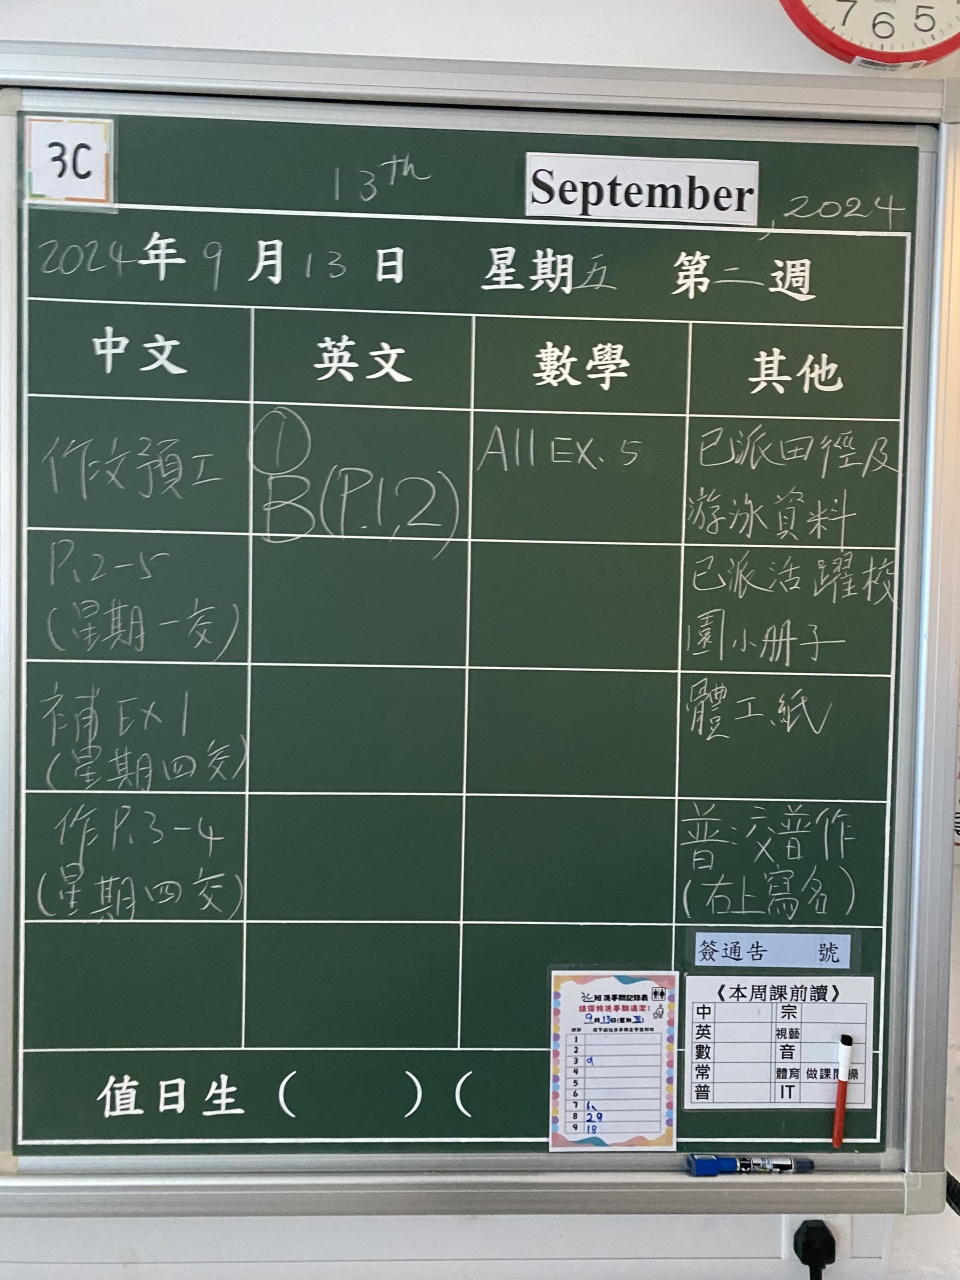 7 6 5
3C
13th September, 2024
2024年9月13日 星期五 第二週
中文 英文 數學 其他
作文預工
P.2-5
(星期一交)
補Ex1
(星期四交)
作P.3-4
(星期四交)
①
B(P.1,2)
All Ex. 5
已派田徑及
游泳資料
已派活躍校
園小册子
體工紙
普:交普作
(右上寫名)
簽通告 號
《本周課前讀》
中 宗
英 視藝
數 音
常 體育 做課間操
普 IT
3C班洗手間記錄表
請保持洗手間清潔!
9月13日(星期五)
1
2
3 9
4
5
6
7
8 29
9 18
值日生( )(